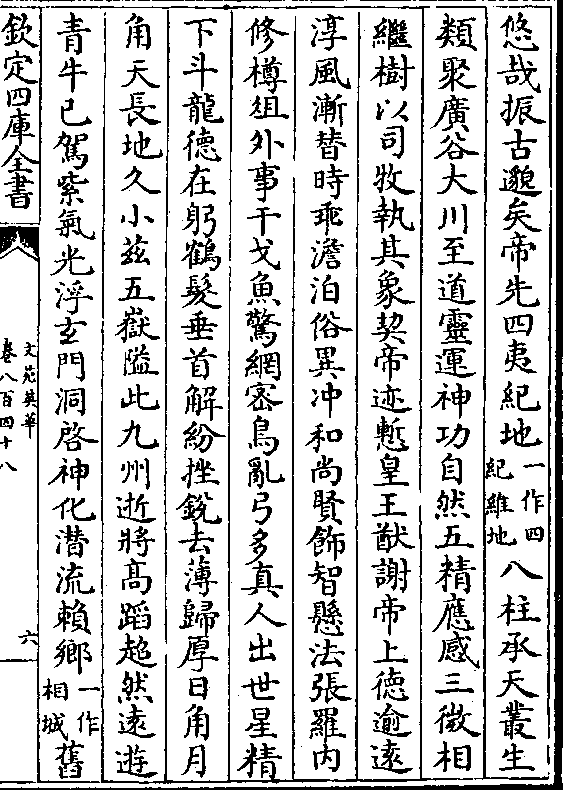 悠哉振古邈矣帝先四夷紀地一作四紀維地八柱承天叢生
類聚廣谷大川至道靈運神功自然五精應感三微相
繼樹以司牧執其象契帝迹慙皇王猷謝帝上徳逾逺
淳風漸替時乖澹泊俗異冲和尚賢飾智懸法張羅内
修樽俎外事干戈魚驚網宻鳥亂弓多真人出世星精
下斗龍徳在躬鶴髮垂首解紛挫銳去薄歸厚日角月
角天長地久小兹五嶽隘此九州逝將髙蹈超然逺遊
青牛已駕紫氣光浮玄門洞啓神化潜流賴鄉一作相城舊
欽定四庫全書
文苑英華
卷八百四十八
六